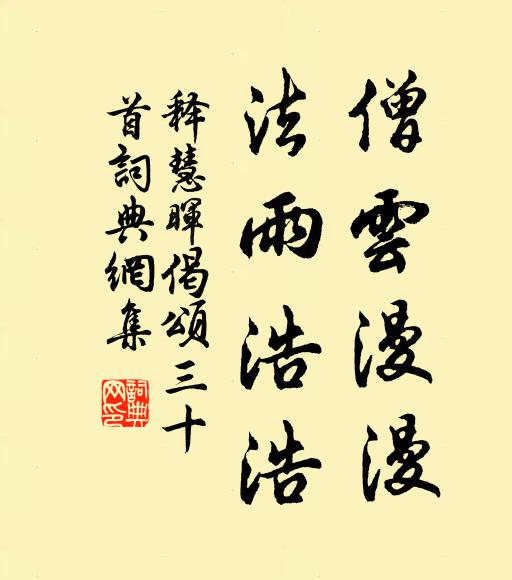 僧雲漫漫
法雨浩浩
释慧暉偈頌三十
首詞典網集
詞典網印